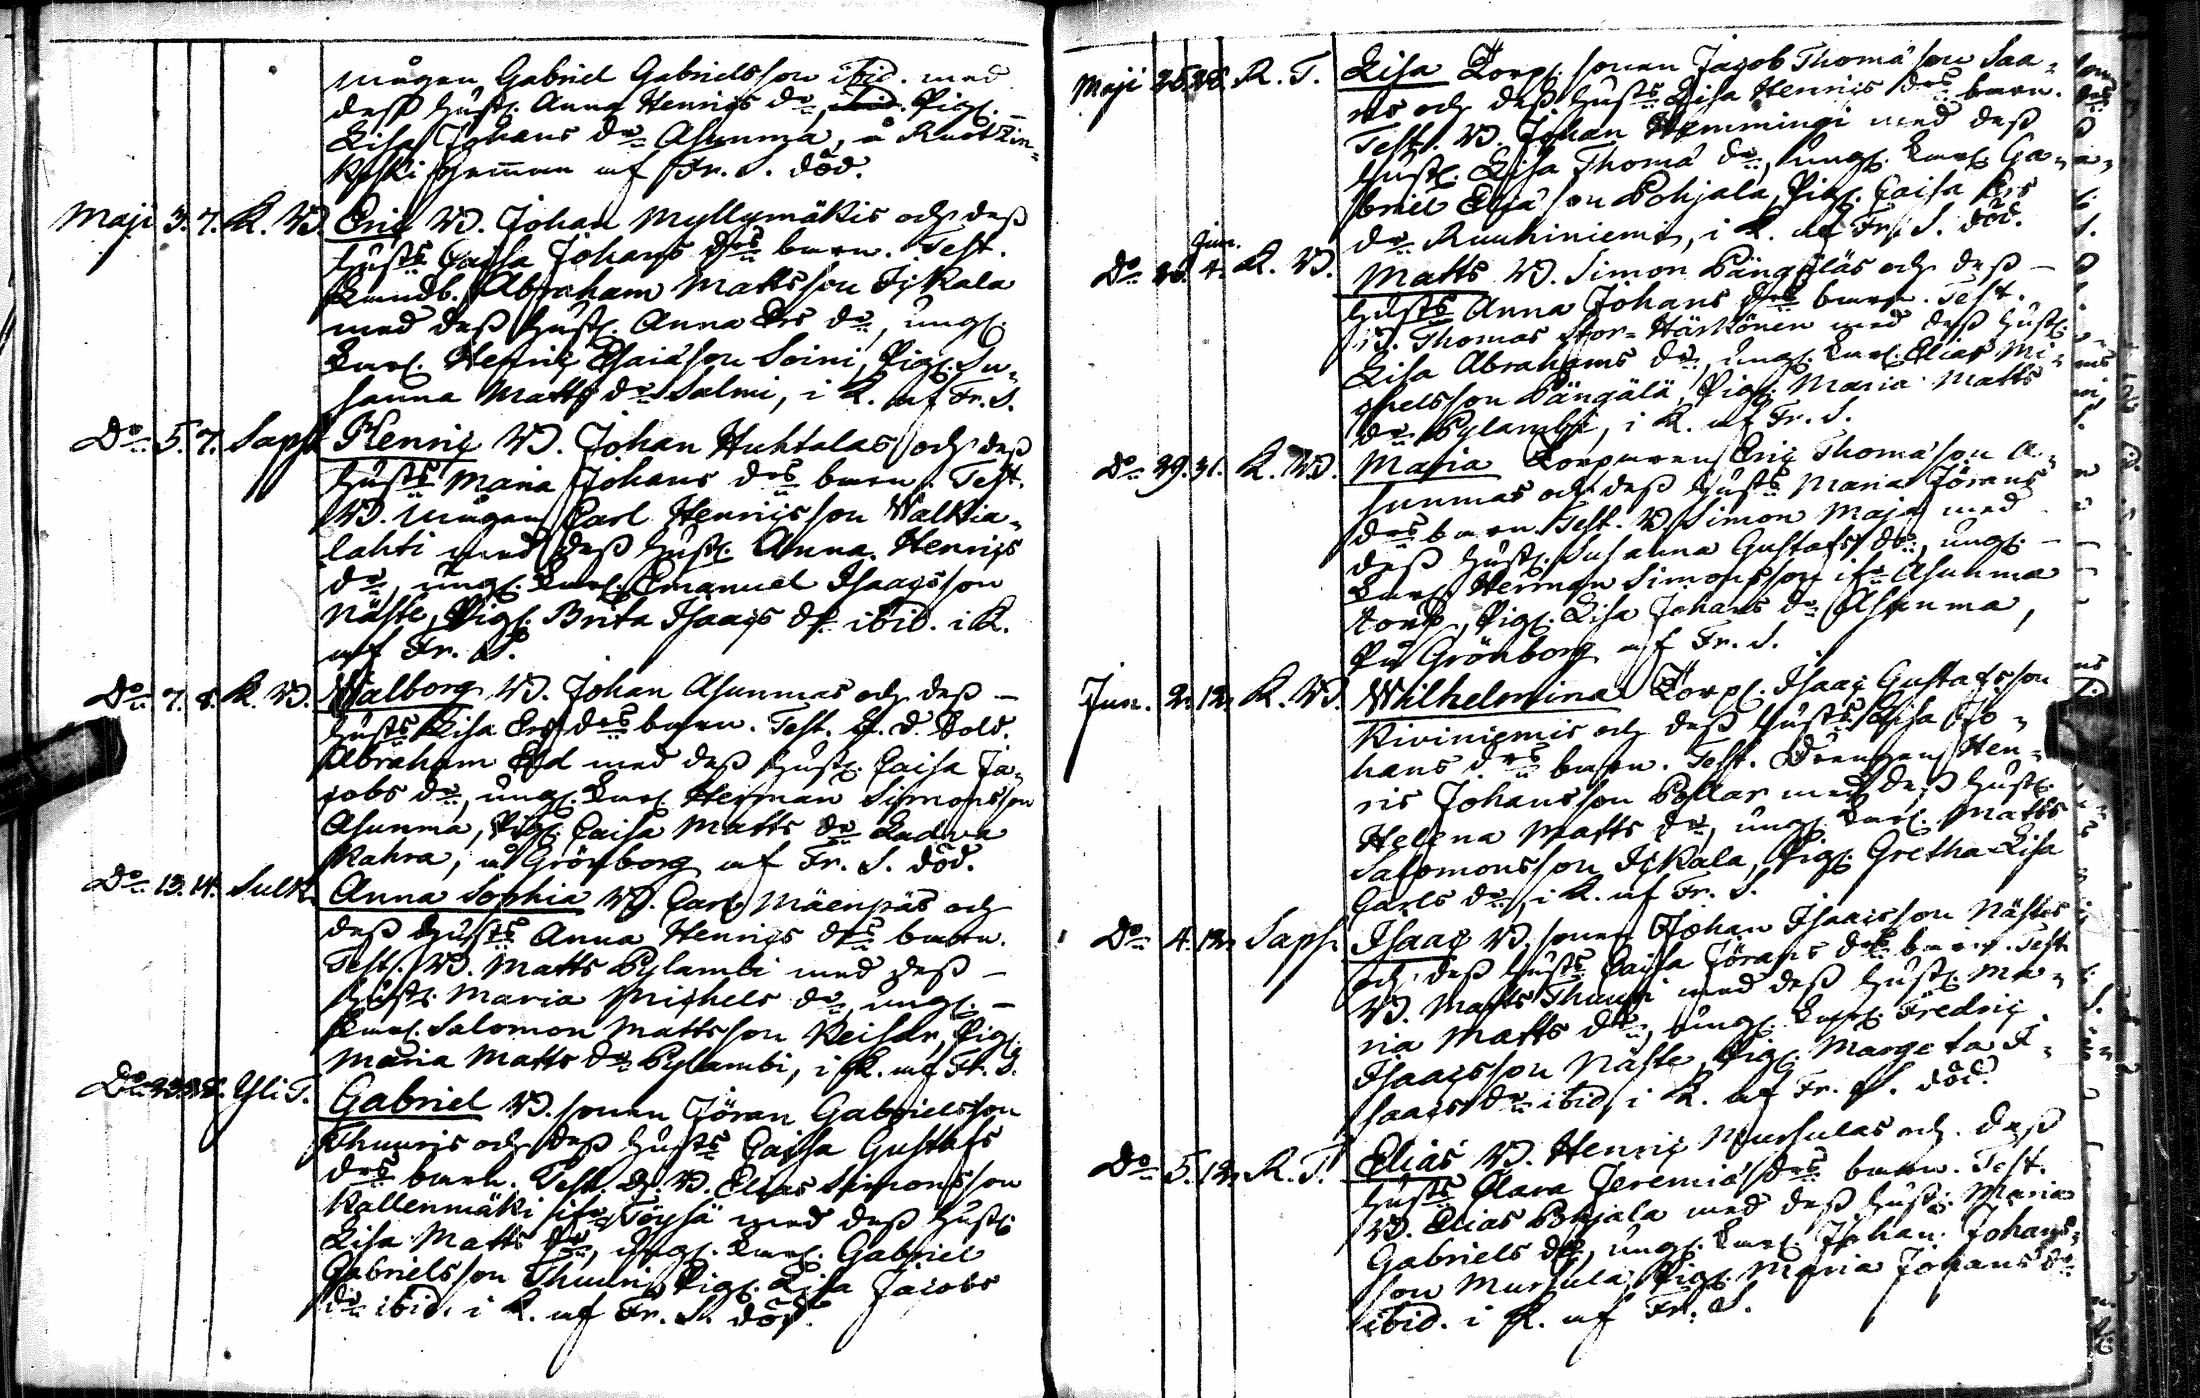 mågen Gabriel Gabrielsson ibid. med
dess hustr. Anna Henrics dr, Pig.
Lisa Johans dr Asunma, å Ruotzin-
kyski hemman af Fr. S. död.
Maji 3. 7. K. W. Eric W. Johan Myllymäkis och dess
hustrs Caisa Johans drs barn. Test.
Landb. Abraham Mattsson Fiskala
med dess hustr. Anna Ers dr, ungf.
Karl. Henric Esaiæson Soini, Pig. Su-
sanna Matts dr Salmi, i K. af Fr. S.
Do 5. 7. Saps. Henric W. Johan Huhtalas och dess
hustrs Maria Johans drs barn. Test.
W. mågen Carl Henricsson Walkia-
lahti med dess hustr. Anna Henrics
dr, ungf. Karl. Emanuel Isaacsson
Näste, Pig. Brita Isaacs dr ibid. i K.
af Fr. S.
Do 7. 8. K. W. Walborg W. Johan Asunmas och dess
hustrs Lisa Ers drs barn. Test. Sold.
Abraham Eld med dess hustr. Caisa Ja-
cobs dr, ungf. Karl. Herman Simonsson
Asunma, Pig. Caisa Matts dr Ladva
Kahra, å Grönborg af Fr. S. död.
Do 13. 14. Sulk. Anna Sophia W. Carl Mäenpäs och
dess hustrs Anna Henrics drs barn.
Test. W. Matts Pylambi med dess
hustr. Maria Michels dr, ungf.
Karl. Salomon Mattsson Keisar, Pig.
Maria Matts dr Pylambi, i K. af Fr. S.
Do 23. 28. Yli T. Gabriel W. sonen Jöran Gabrielsson
Thuuris och dess hustrs Caisa Gustafs
drs barn. Test. W. Elias Simonsson
Kallenmäki ifr Töysä med dess hustr.
Lisa Matts dr, ungf. Karl. Gabriel
Gabrielsson Thuuri, Pig. Lisa Jacobs
dr ibid. i K. af Fr. S. död.
Maji 25. 28. R. T. Lisa Torp. sonen Jacob Thomæson Saa-
ris och dess hustrs Lisa Henrics drs barn.
Test. W. Johan Hemmingi med dess
hustr. Lisa Thomæ dr, ungf. Karl. Ga-
briel Eliæson Pohjala, Pig. Caisa Ers
dr Ruuhiniemi, i K. af Fr. S. död.
Do 26. Jun. 4. K. W. Matts W. Simon Pängäläs och dess
hustrs Anna Johans drs barn. Test.
W. Thomas Stor-Härkönen med dess hustr.
Lisa Abrahams dr, ungf. Karl. Elias Mi-
chelsson Pängälä, Pig. Maria Matts
dr Pylambi, i K. af Fr. S.
Do 29. 31. K. W. Maria Torparen Eric Thomæson A-
sunmas och dess hustrs Maria Jörans
drs barn. Test. W. Simon Maja med
dess hustr. Susanna Gustafs dr, ungf.
Karl. Herman Simonsson ifr Asunma
torp, Pig. Lisa Johans dr Asunma,
På Grönborg af Fr. S.
Jun. 2. 12. K. W. Wilhelmina Torp. Isaac Gustafsson
Kiviniemis och dess hustrs Lisa Jo-
hans drs barn. Test. Drengen Hen-
ric Johansson Pollar med dess hustr.
Helena Matts dr, ungf. Karl. Matts
Salomonsson Fiskala, Pig. Gretha Lisa
Carls dr, i K. af Fr. S.
Do 4. 12. Saps. Isaac W. sonen Johan Isaacsson Nästes
och dess hustrs Caisa Jörans drs barn. Test.
W. Matts Thuuri med dess hustr. Ma-
ria Matts dr, ungf. Karl. Fredric
Isaacsson Näste, Pig. Margeta I-
saacs dr ibid, i K. af Fr. S. död.
Do 5. 12. R. T. Elias W. Henric Mursulas och dess
hustrs Clara Jeremiæ drs barn. Test.
W. Elias Pohjala med dess hustr. Maria
Gabriels dr, ungf. Karl. Johan Johans-
son Mursula, Pig. Maria Johans dr
ibid. i K. af Fr. S.